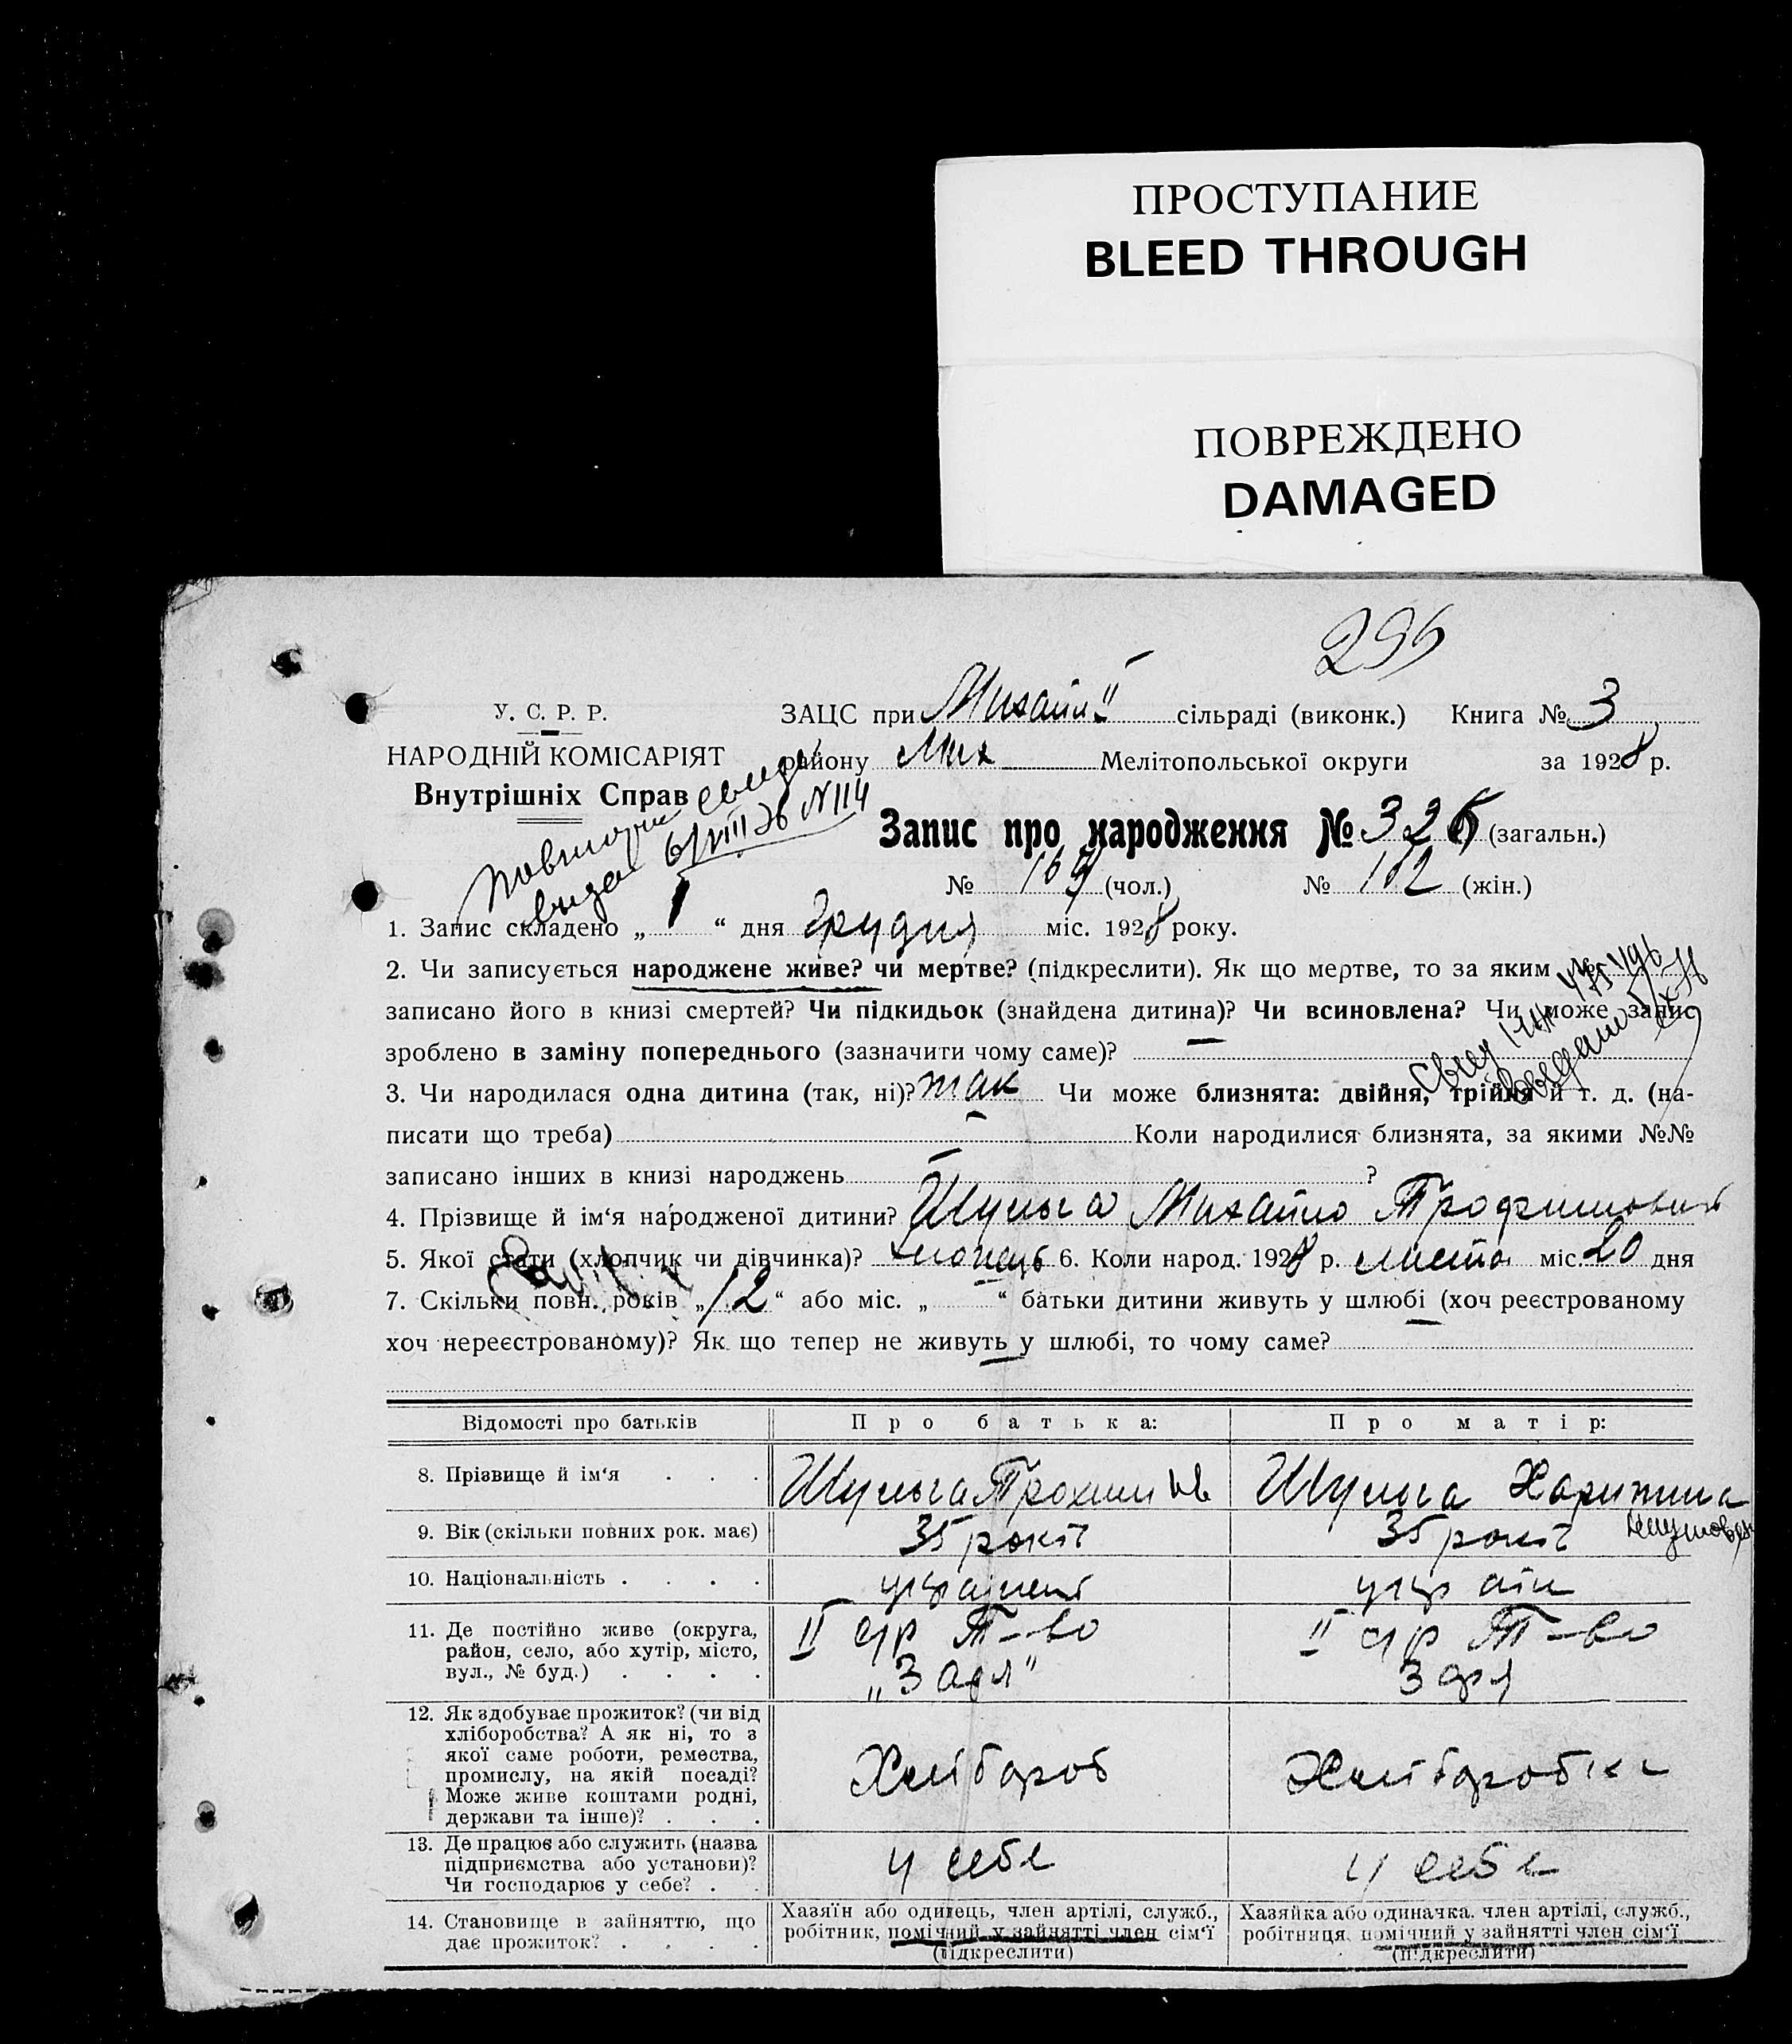 ПРОСТУПАНИЕ
BLEED THROUGH
ПОВРЕЖДЕНО
DAMAGED
У. С. Р. Р.
НАРОДНІЙ КОМІСАРІЯТ
Внутрішніх Справ
ЗАЦС при Михайл II сільраді (виконк.) Книга № 3
району Мих Мелітопольської округи за 1928 р.
Запис про народження № (загальн.)
№ (чол.) № 162 (жін.)
1. Запис складено „ 1 “ дня грудня міс. 1928 року.
2. Чи записується народжене живе? чи мертве? (підкреслити). Як що мертве, то за яким №
записано його в книзі смертей? Чи підкидьок (знайдена дитина)? Чи всиновлена? Чи може запис
зроблено в заміну попереднього (зазначити чому саме)? —
3. Чи народилася одна дитина (так, ні)? так Чи може близнята: двійня, трійня й т. д. (на-
писати що треба) — Коли народилися близнята, за якими №№
записано інших в книзі народжень — ?
4. Прізвище й ім'я народженої дитини? Шульга Михайло Трофимович
5. Якої стати (хлопчик чи дівчинка)? хлопець 6. Коли народ. 1928 р. листоп міс. 20 дня
7. Скільки повн. років „ 12 “ або міс. „ “ батьки дитини живуть у шлюбі (хоч реєстрованому
хоч нереєстрованому)? Як що тепер не живуть у шлюбі, то чому саме?
Відомості про батьків Про батька: Про матір:
8. Прізвище й ім‘я . . . Шульга Трохим Шульга Харитина
9. Вік (скільки повних рок. має) 35 років 35 років
10. Національність . . . . українець україн
11. Де постійно живе (округа, II с/р Т-во II с/р Т-во
район, село, або хутір, місто, „Заря“ Заря
вул., № буд.) . . . .
12. Як здобуває прожиток? (чи від
хліборобства? А як ні, то з
якої саме роботи, ремества, Хлібороб Хлібзробка
промислу, на якій посаді?
Може живе коштами родні,
держави та інше)? . . .
13. Де працює або служить (назва
підприємства або установи)? у себе у себе
Чи господарює у себе? .
14. Становище в зайняттю, що Хазяїн або одинець, член артілі, служб., Хазяйка або одиначка. член артілі, служб.,
дає прожиток? . . . . робітник, помічний у зайнятті член сім‘ї робітниця помічний у зайнятті член сім‘ї
(підкреслити) (підкреслити)